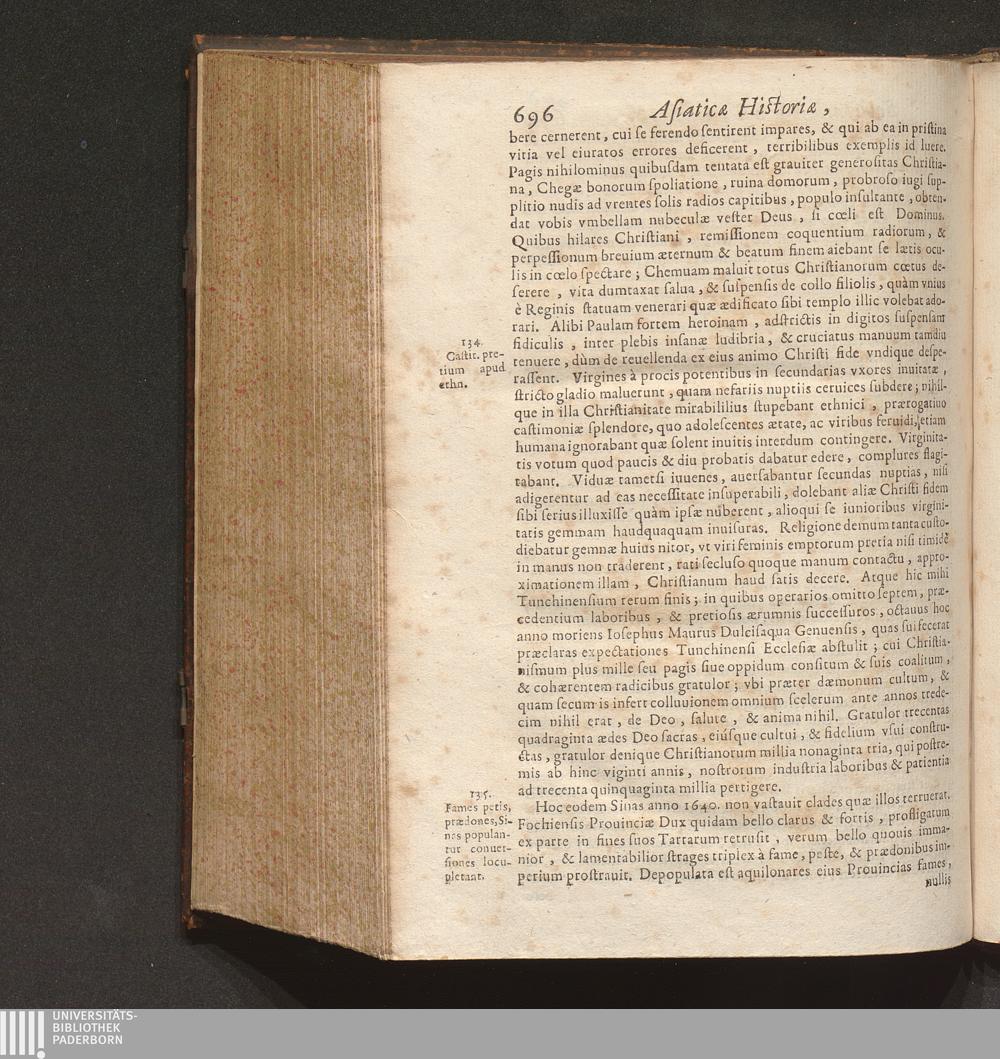 696 Aſiaticæ Hiſtoriæ,
bere cernerent, cui ſe ferendo ſentirent impares, & qui ab ea in priſtina
vitia vel eiuratos errores deficerent, terribilibus exemplis id luere.
Pagis nihilominus quibuſdam tentata eſt grauiter generoſitas Chriſtia-
na, Chegæ bonorum ſpoliatione, ruina domorum, probroſo iugi ſup-
plitio nudis ad vrentes ſolis radios capitibus, populo inſultante, obten-
dat vobis vmbellam nubeculæ veſter Deus, ſi cœli eſt Dominus.
Quibus hilares Chriſtiani, remiſſionem coquentium radiorum, &
perpeſſionum breuium æternum & beatum finem aiebant ſe lætis ocu-
lis in cœlo ſpectare; Chemuam maluit totus Chriſtianorum cœtus de-
ſerere, vita dumtaxat ſalua, & ſuſpenſis de collo filiolis, quàm vnius
è Reginis ſtatuam venerari quæ ædificato ſibi templo illic volebat ado-
rari. Alibi Paulam fortem heroinam, adſtrictis in digitos ſuſpenſam
fidiculis, inter plebis inſanæ ludibria, & cruciatus manuum tamdiu
tenuere, dùm de reuellenda ex eius animo Chriſti fide vndique deſpe-
raſſent. Virgines à procis potentibus in ſecundarias vxores inuitatæ,
ſtricto gladio maluerunt, quam nefariis nuptiis ceruices ſubdere; nihil-
que in illa Chriſtianitate mirabililius ſtupebant ethnici, prærogatiuo
caſtimoniæ ſplendore, quo adoleſcentes ætate, ac viribus feruidi, etiam
humana ignorabant quæ ſolent inuitis interdum contingere. Virginita-
tis votum quod paucis & diu probatis dabatur edere, complures flagi-
tabant. Viduæ tametſi iuuenes, auerſabantur ſecundas nuptias, niſi
adigerentur ad eas neceſſitate inſuperabili, dolebant aliæ Chriſti fidem
ſibi ſerius illuxiſſe quàm ipſæ nuberent, alioqui ſe iunioribus virgini-
tatis gemmam haudquaquam inuiſuras. Religione demum tanta cuſto-
diebatur gemnæ huius nitor, vt viri feminis emptorum pretia niſi timidè
in manus non traderent, rati ſecluſo quoque manum contactu, appro-
ximationem illam, Chriſtianum haud ſatis decere. Atque hic mihi
Tunchinenſium rerum finis; in quibus operarios omitto ſeptem, præ-
cedentium laboribus, & pretioſis ærumnis ſucceſſuros, octauus hoc
anno moriens Ioſephus Maurus Dulciſaqua Genuenſis, quas ſui fecerat
præclaras expectationes Tunchinenſi Eccleſiæ abſtulit; cui Chriſtia-
niſmum plus mille ſeu pagis ſiue oppidum conſitum & ſuis coalitum,
& cohærentem radicibus gratulor; vbi præter dæmonum cultum, &
quam ſecum is infert colluuionem omnium ſcelerum ante annos trede-
cim nihil erat, de Deo, ſalute, & anima nihil. Gratulor trecentas
quadraginta ædes Deo ſacras, eiúſque cultui, & fidelium vſui conſtru-
ctas, gratulor denique Chriſtianorum millia nonaginta tria, qui poſtre-
mis ab hinc viginti annis, noſtrorum induſtria laboribus & patientia
ad trecenta quinquaginta millia pertigere.
Hoc eodem Sinas anno 1640. non vaſtauit clades quæ illos terruerat.
Fochienſis Prouinciæ Dux quidam bello clarus & fortis, profligatum
ex parte in fines ſuos Tartarum retruſit, verum bello quouis imma-
nior, & lamentabilior ſtrages triplex à fame, peſte, & prædonibus im-
perium proſtrauit. Depopulata eſt aquilonares eius Prouincias fames,
nullis
134.
Caſtit. pre-
tium apud
ethn.
135.
Fames peſtis,
prædones, Si-
nas populan-
tur conuer-
ſiones locu-
pletant.
UNIVERSITÄTS-
BIBLIOTHEK
PADERBORN